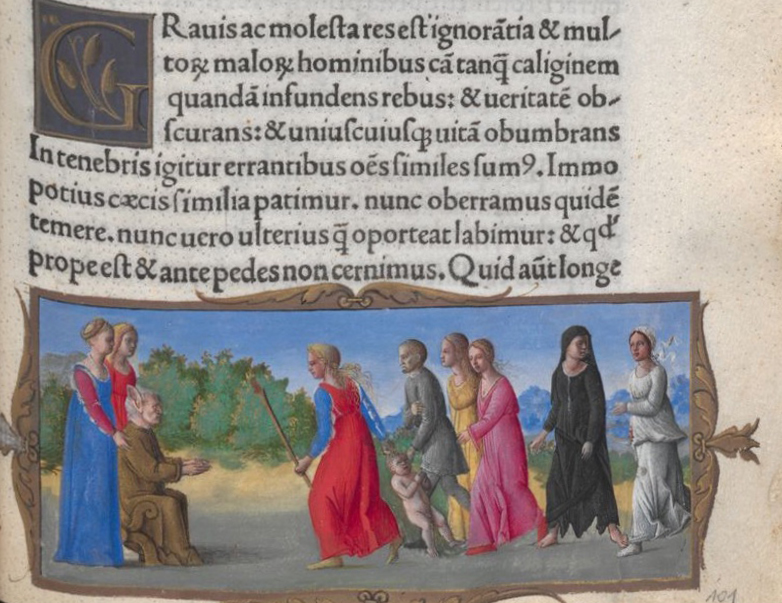 GRauis ac molesta res est ignorãtia & mul-
toꝝ maloꝝ hominibus cã tanq̃ caliginem
quandã infundens rebus: & ueritatẽ ob-
scurans: & uniuscuiusꝗ uitã obumbrans
In tenebris igitur errantibus oẽs similes sumꝰ. Immo
potius cæcis similia patimur. nunc oberramus quidẽ
temere. nunc uero ulterius q̃ oporteat labimur: & qđ
prope est & ante pedes non cernimus. Quid aũt longe
101